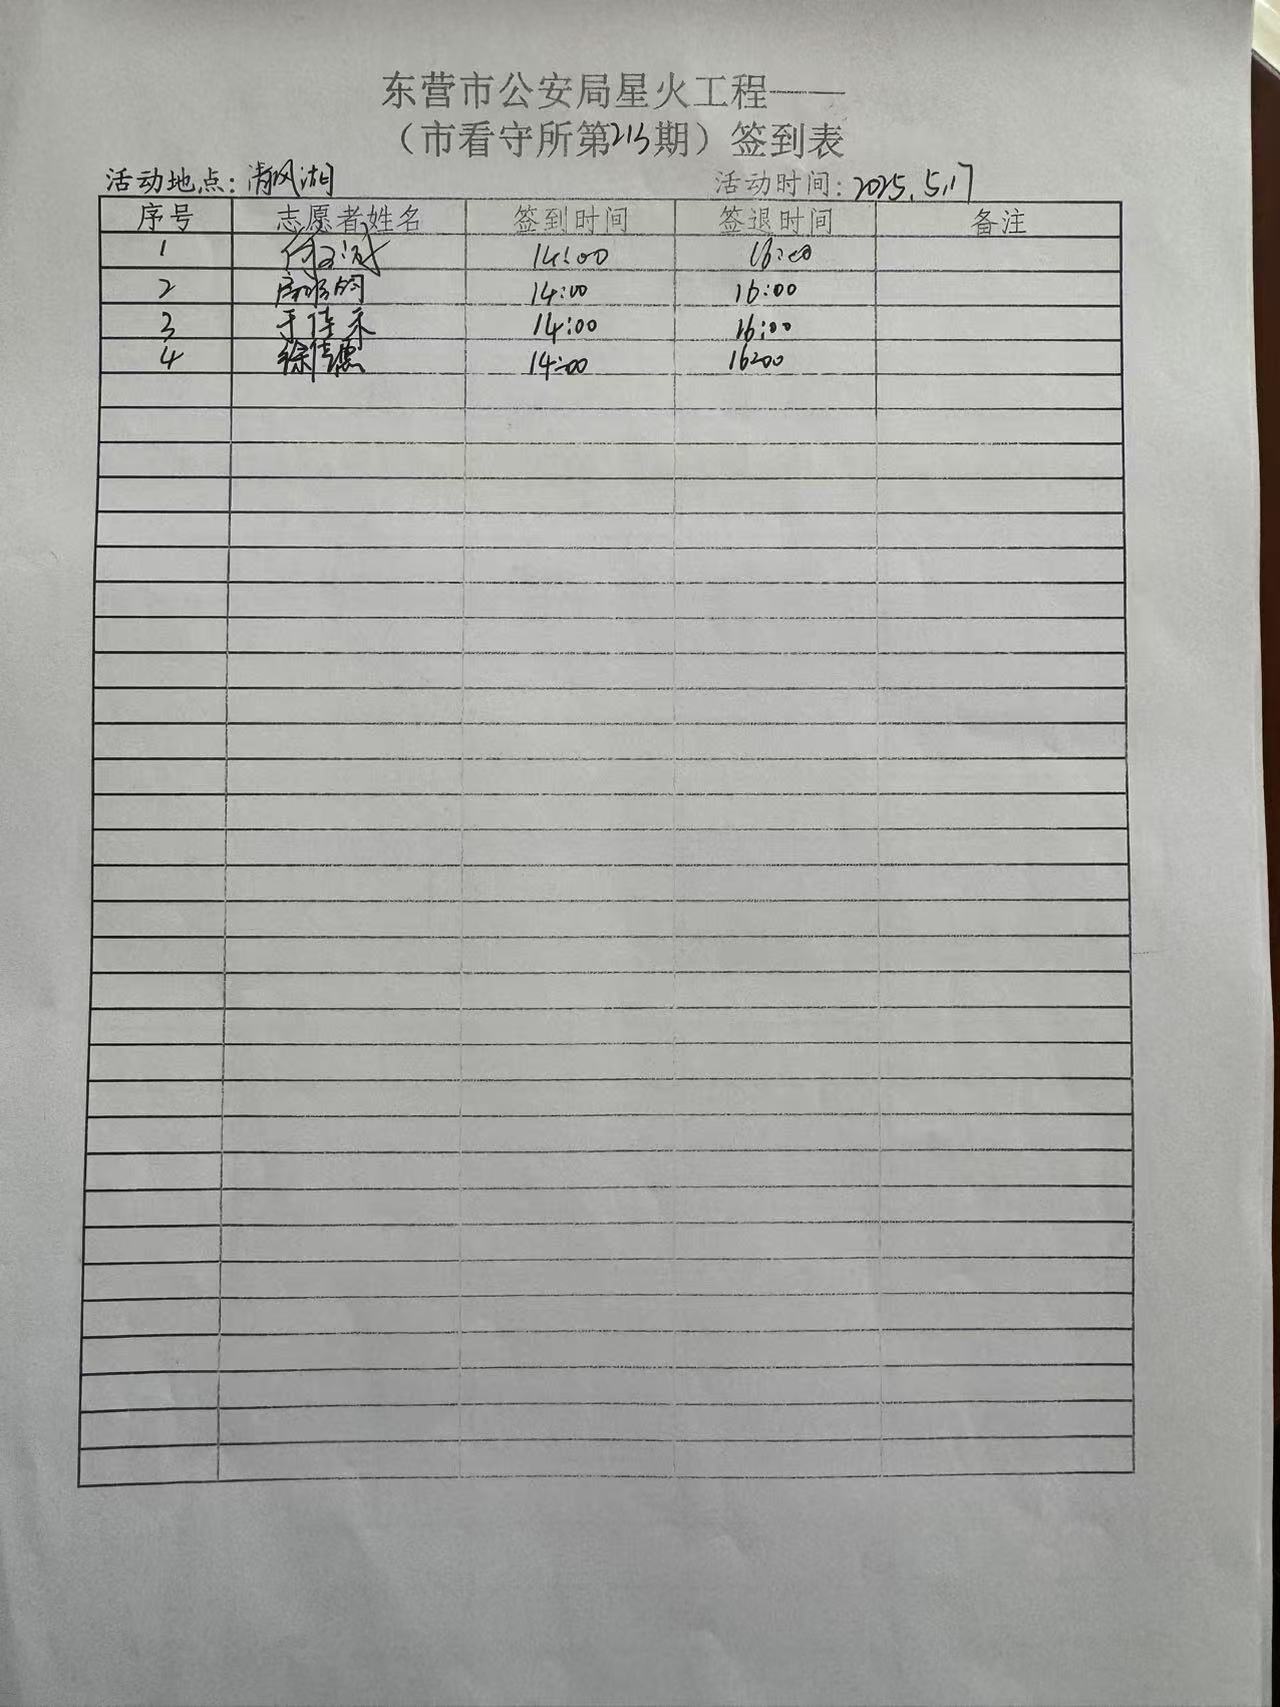 东营市公安局星火工程——
（市看守所第213期）签到表
活动地点：清风湖 活动时间：2025.5.17
序号 志愿者姓名 签到时间 签退时间 备注
1 14:00 16:00
2 14:00 16:00
3 于佳禾 14:00 16:00
4 徐德 14:00 16:00